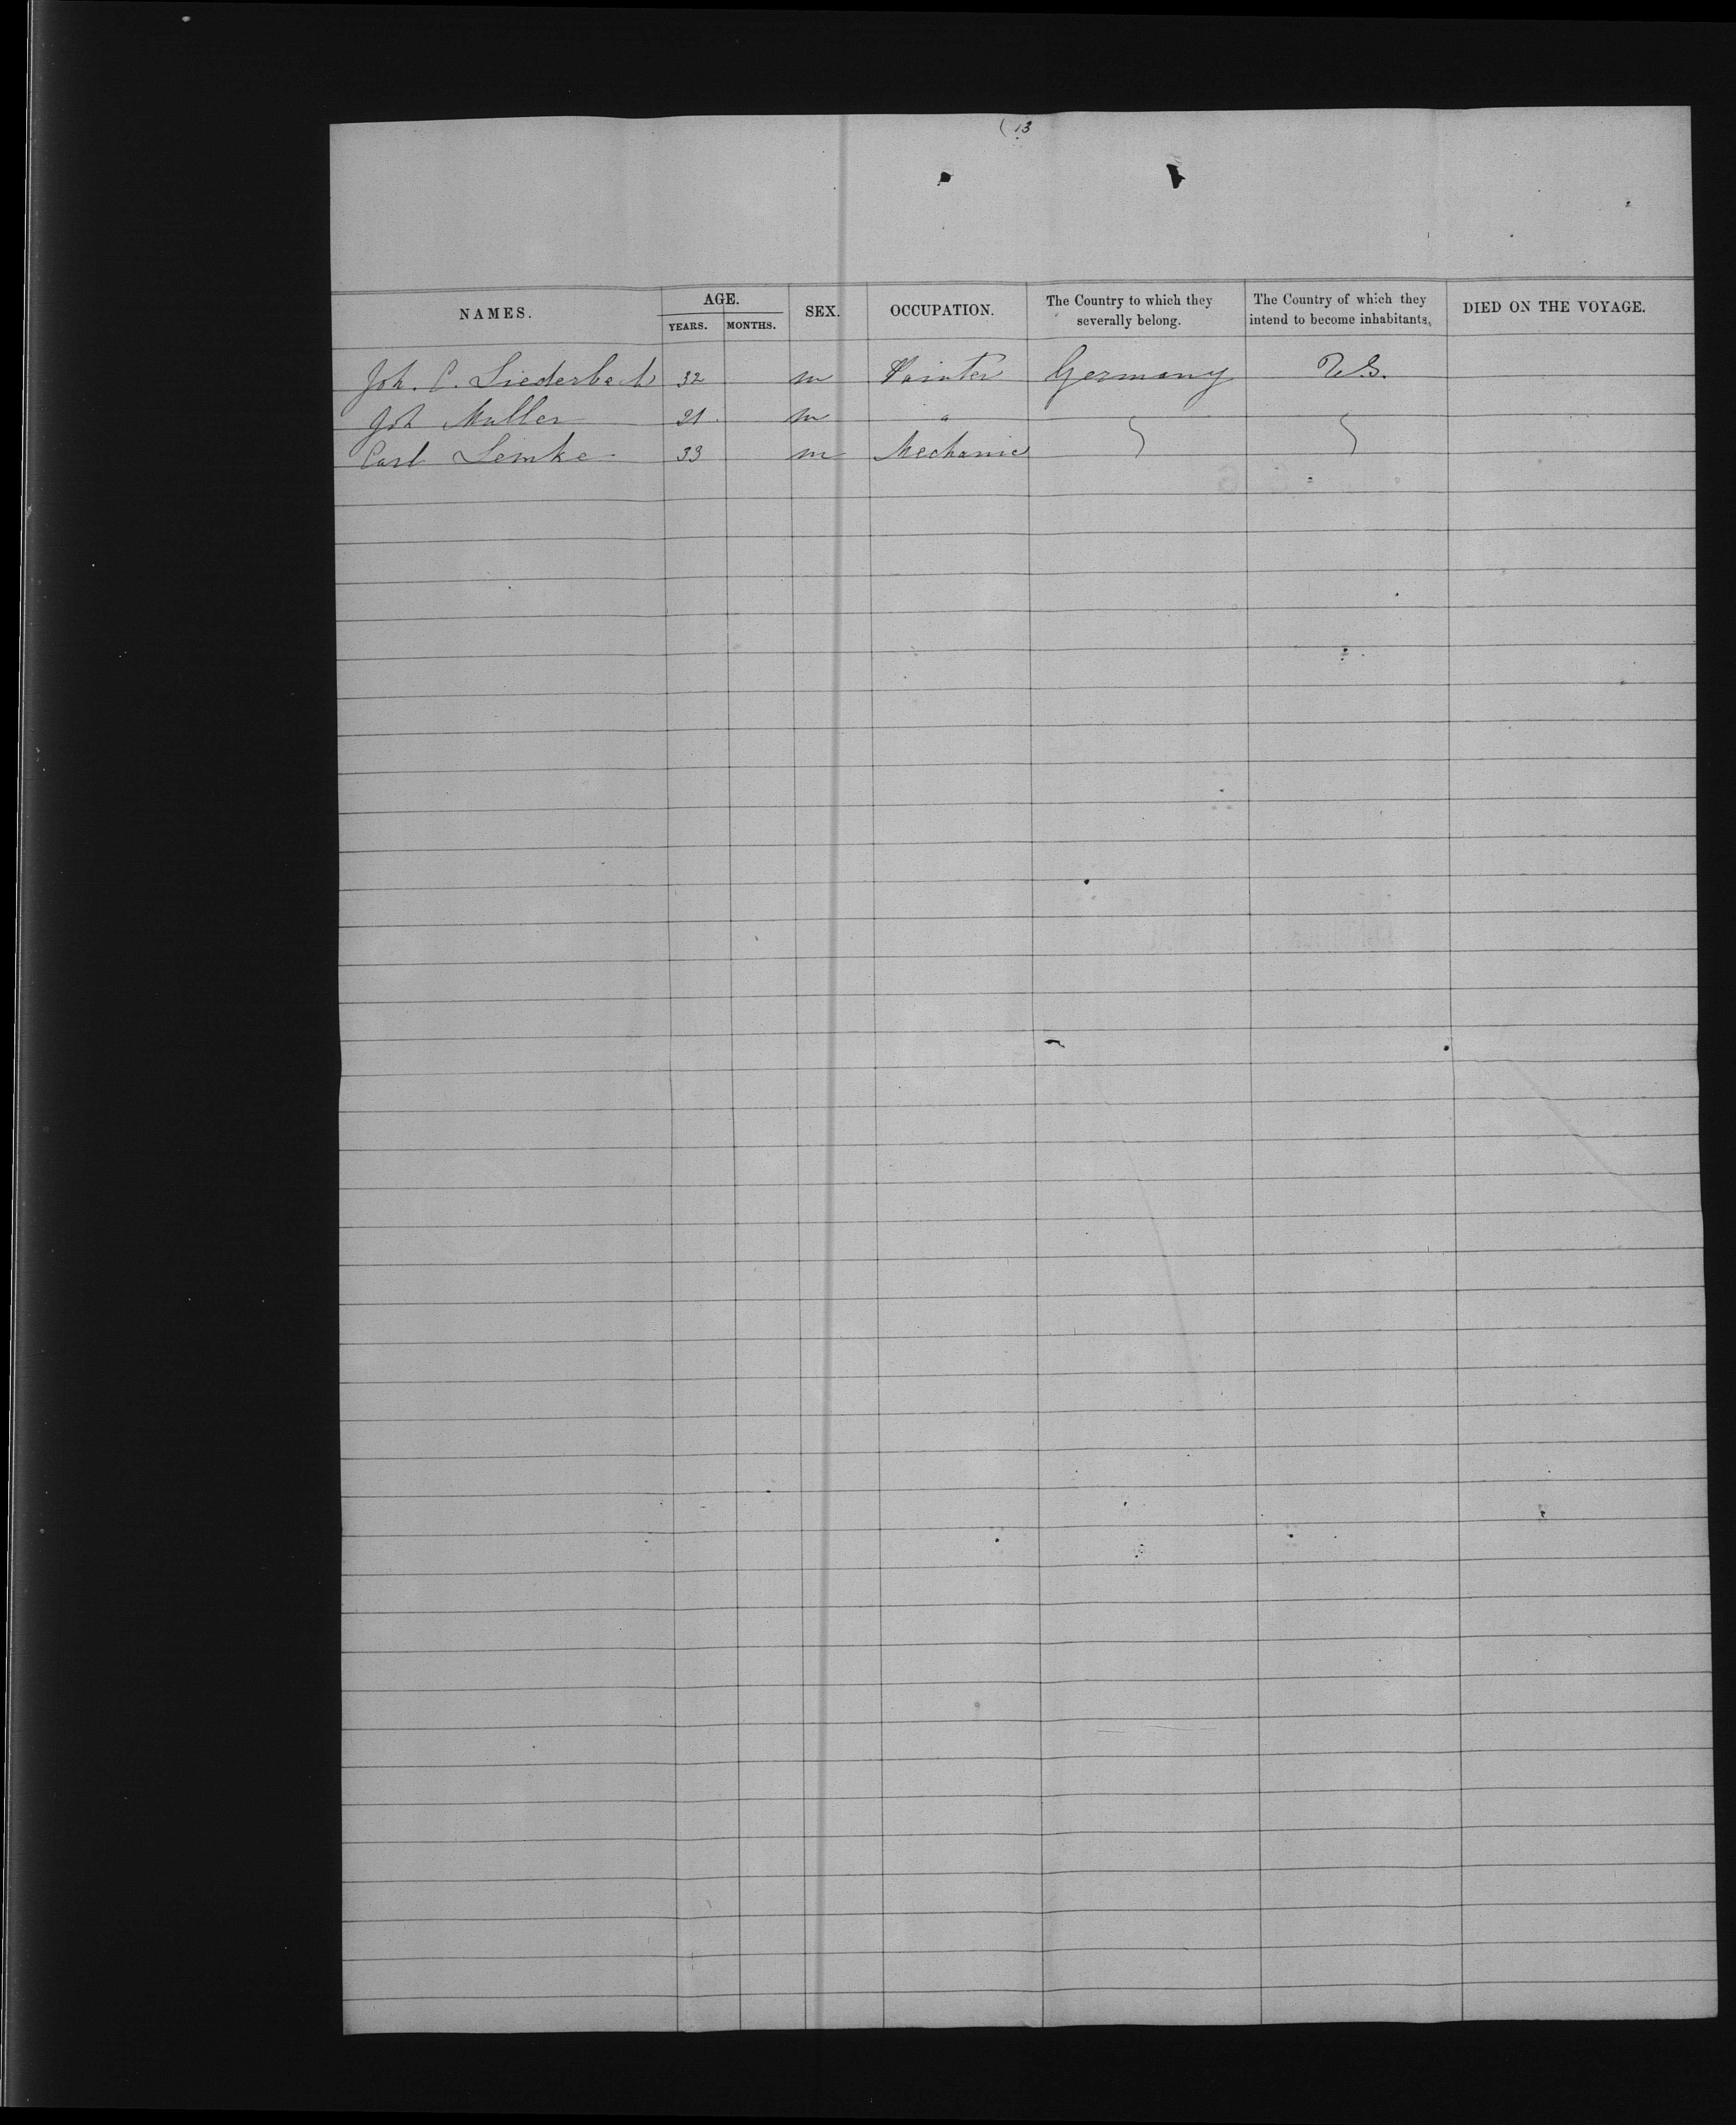 ( 13
NAMES. AGE. YEARS. MONTHS. SEX. OCCUPATION. The Country to which they severally belong. The Country of which they intend to become inhabitants. DIED ON THE VOYAGE.
Joh. C. Liederbach 32 m Painter Germany U.S.
Joh Muller 21 m "
Carl Lemke 33 m Mechanic